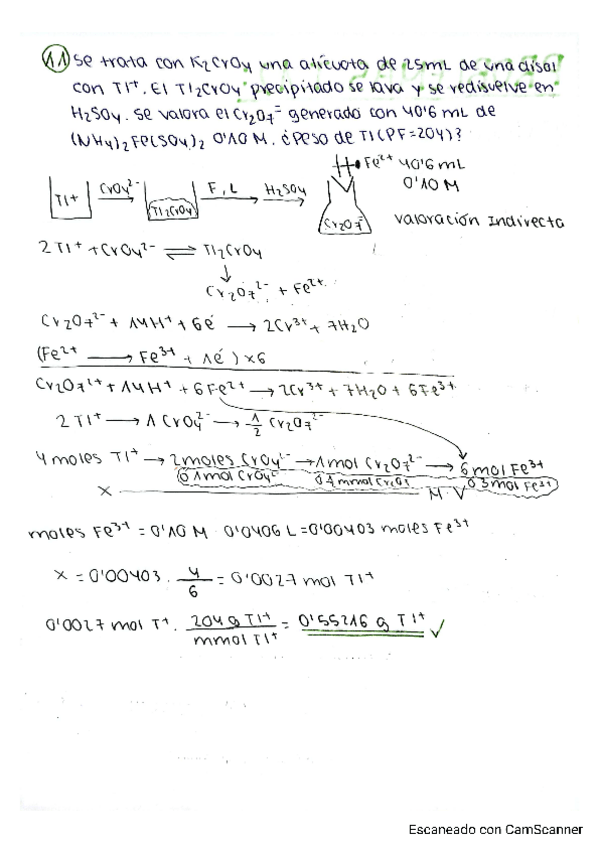 11 Se trata con K2CrO4 una alícuota de 25mL de una disol
con Tl+. El Tl2CrO4 precipitado se lava y se redisuelve en
H2SO4. Se valora el Cr2O7= generado con 40'6 mL de
(NH4)2Fe(SO4)2 0'10 M. ¿Peso de Tl (PF=204)?
Fe2+ 40'6 mL
0'10 M
Tl+ CrO4^2- Tl2CrO4 F, L H2SO4 Cr2O7= valoración Indirecta
2Tl+ + CrO4^2- ⇌ Tl2CrO4
↓
Cr2O7^2- + Fe2+
Cr2O7^2- + 14H+ + 6é → 2Cr3+ + 7H2O
(Fe2+ → Fe3+ + 1é) x6
Cr2O7^2+ + 14H+ + 6Fe2+ → 2Cr3+ + 7H2O + 6Fe3+
2Tl+ → 1 CrO4^2- → 1/2 Cr2O7^2-
4 moles Tl+ → 2 moles CrO4^2- → 1 mol Cr2O7^2- → 6 mol Fe3+
x M·V
moles Fe3+ = 0'10 M · 0'0406 L = 0'00403 moles Fe3+
x = 0'00403 · 4/6 = 0'0027 mol Tl+
0'0027 mol T+ · 204 g Tl+ / mmol Tl+ = 0'55216 g Tl+ ✓
Escaneado con CamScanner